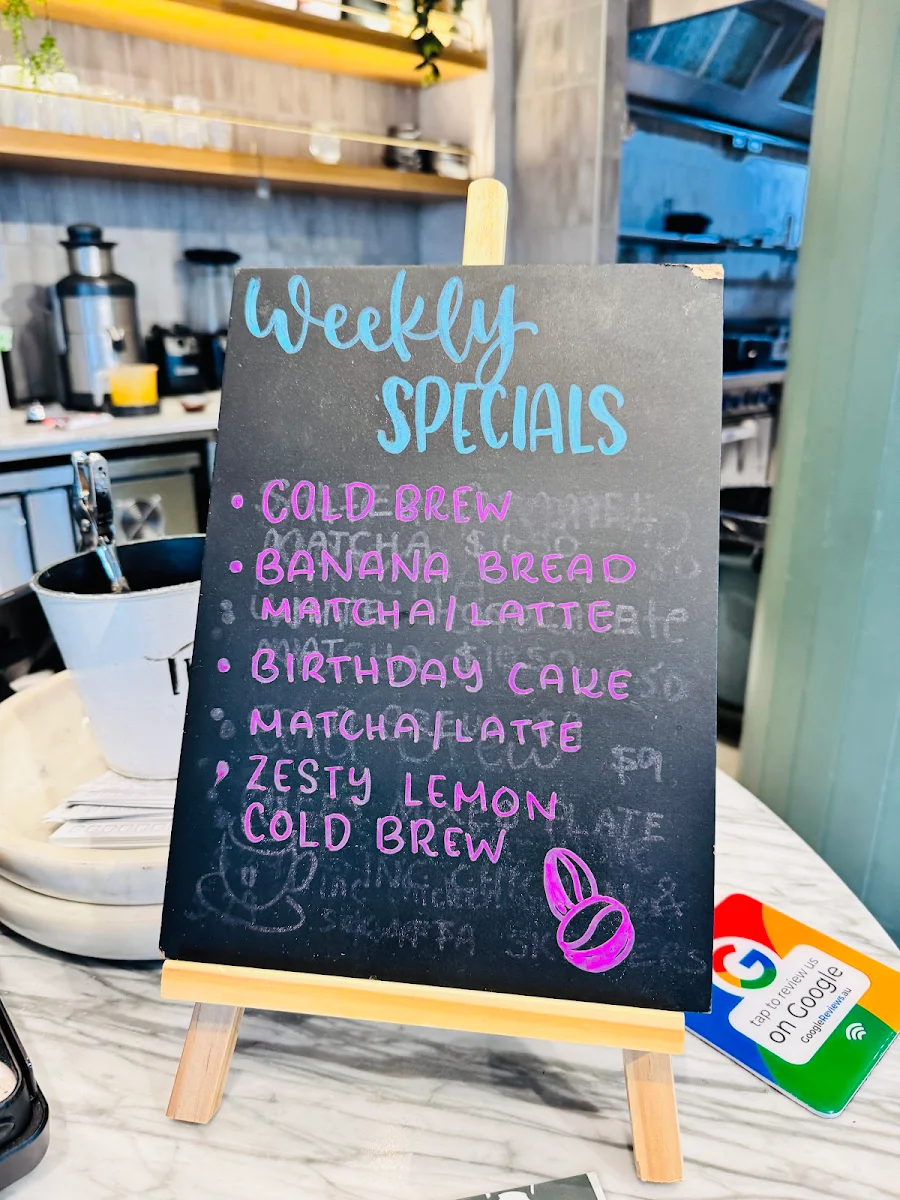 Weekly
SPECIALS
• COLD BREW
MATCHA $10.50
• BANANA BREAD
MATCHA/LATTE
• BIRTHDAY CAKE
MATCHA/LATTE
$9
• ZESTY LEMON
COLD BREW
G
tap to review us
on Google
GoogleReviews.au